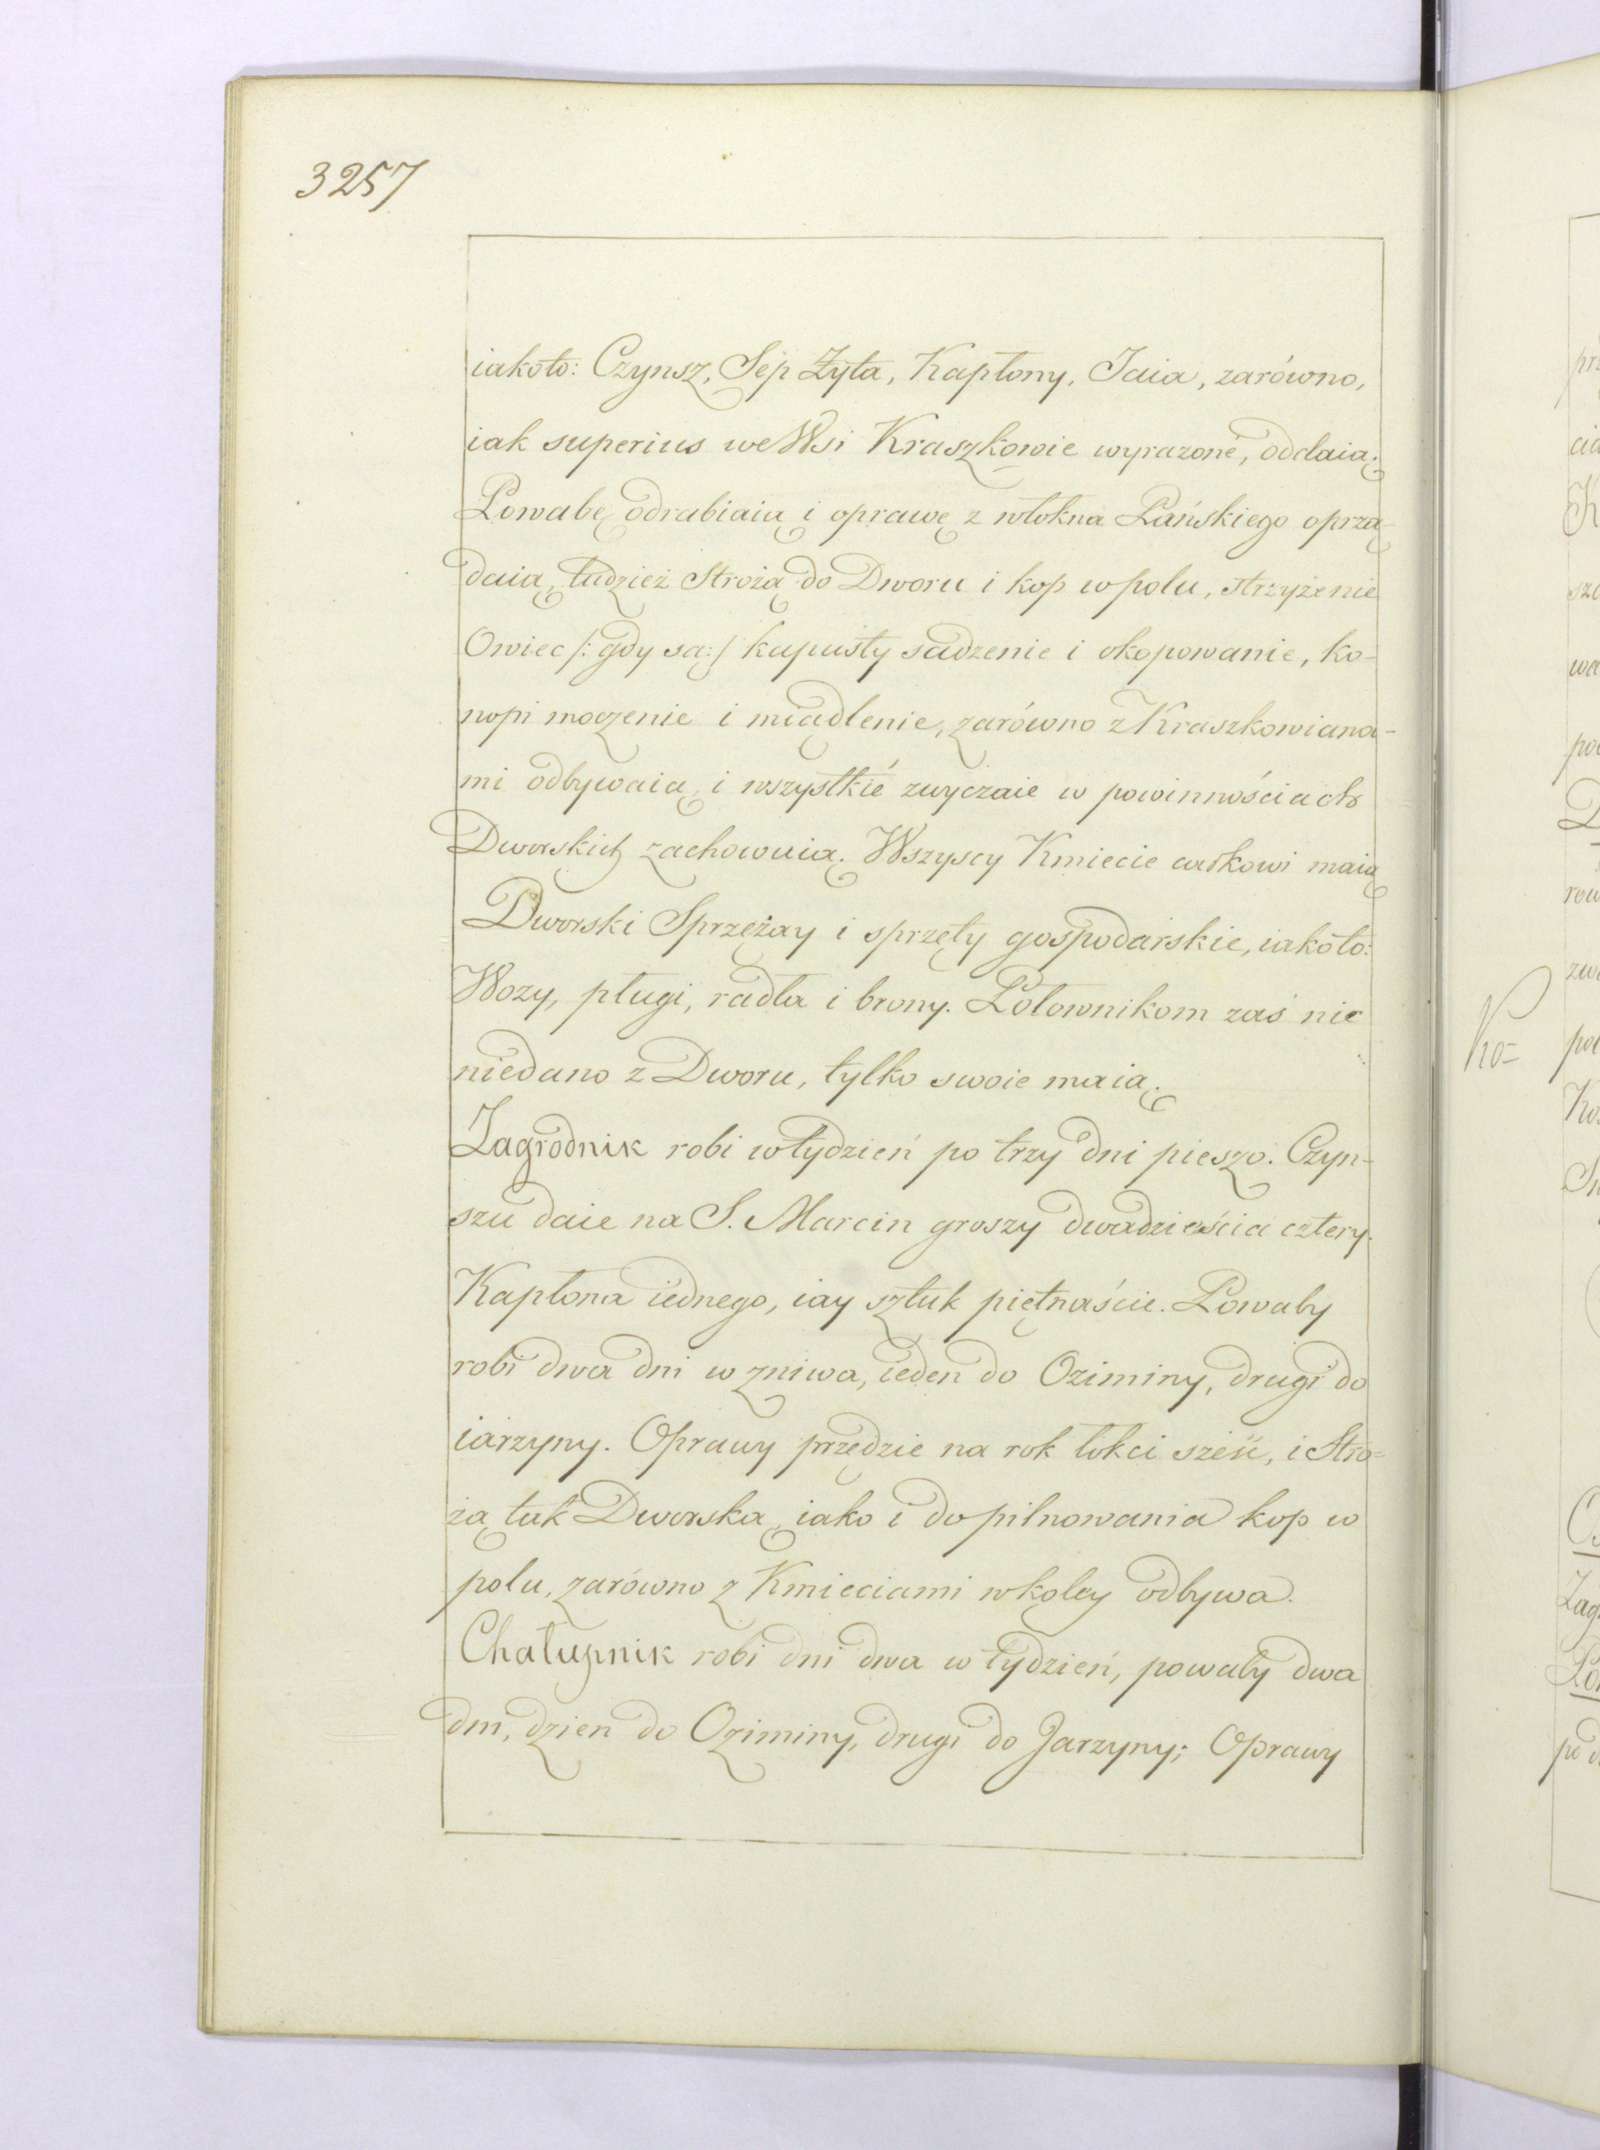 3257
iakoto: Czynsz, Sep Żyta, Kapłony, Jaia, zarówno,
iak superius we Wsi Kraszkowie wyrażoné, oddaią.
Powabę odrabiaią i oprawę z włokna Pańskiego oprzą-
daią, tudzież Strożą do Dworu i kop w polu, strzyżenie
Owiec /: gdy są :/ kapusty sadzenie i okopowanie, ko-
nopi moczenie i międlenie, zarówno z Kraszkowiana-
mi odbywaią, i wszystkié zwyczaie w powinnościach
Dworskich zachowuią. Wszyscy Kmiecie całkowi maią
Dworski Sprzężay i sprzęty gospodarskie, iakoto:
Wozy, pługi, radła i brony. Połownikom zaś nic
niedano z Dworu, tylko swoie maią.
Zagrodnik robi w tydzień po trzy dni pieszo. Czyn-
szu daie na S. Marcin groszy dwadzieścia cztery.
Kapłona iednego, iay sztuk piętnaście. Powaby
robi dwa dni w zniwa, ieden do Oziminy, drugi do
iarzyny. Oprawy przędzie na rok łokci sześć, i Stro-
żą tak Dworską, iako i do pilnowania kop w
polu, zarówno z Kmieciami w koley odbywa.
Chałupnik robi dni dwa w tydzień, powaby dwa
dni, dzien do Oziminy, drugi do Jarzyny; Oprawy
Ko-